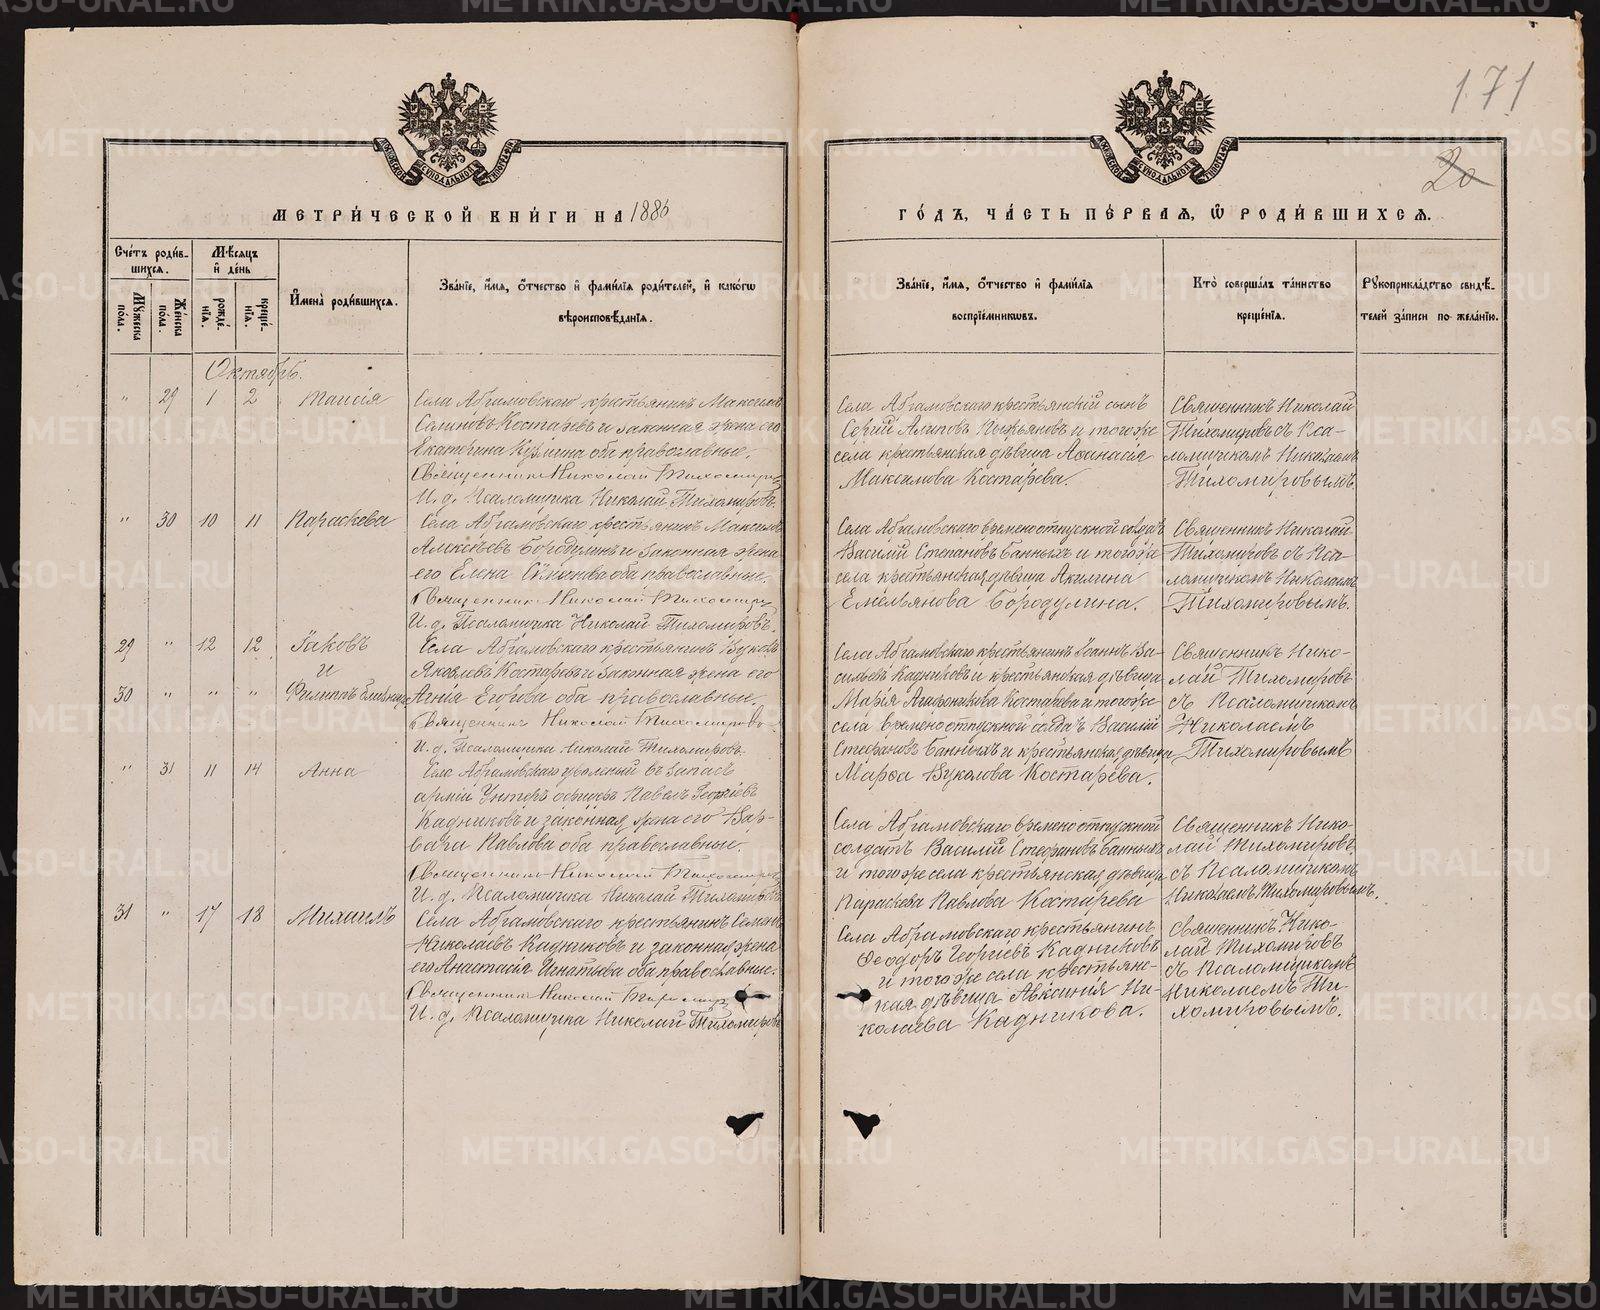 171
20
МОСКОВСКОЙ СУНОДАЛЬНОЙ ТИПОГРАФІИ
МОСКОВСКОЙ СУНОДАЛЬНОЙ ТИПОГРАФІИ
МЕТРИ́ЧЕСКОЙ КНИ́ГИ НА 1886
ГО́ДЪ, ЧА́СТЬ ПЕ́РВАѦ, Ѽ РОДИ́ВШИХСѦ.
Сче́тъ роди́в-
шихсѧ.
Му́жеска
по́ла.
Же́нска
по́ла.
Мѣ́сѧцъ
и҆ де́нь
рожде́-
нїѧ.
креще́-
нїѧ.
И҆мена̀ роди́вшихсѧ.
Зва́нїе, и҆́мѧ, ѻ҆́тчество и҆ фами́лїѧ роди́телей, и҆ како́гѡ
вѣроисповѣ́данїѧ.
Зва́нїе, и҆́мѧ, ѻ҆́тчество и҆ фами́лїѧ
воспрїе́мникѡвъ.
Кто̀ соверша́лъ та́инство
креще́нїѧ.
Рꙋкоприкла́дство свидѣ́-
телей за́писи по жела́нїю.
Октябрь.
" 29 1 2 Таисія
Села Абрамовскаго крестьянинъ Максимъ
Костаревъ и законная жена его
Екатерина Кузмина оба православные.
Священникъ Николай Тихомировъ
И. д. Псаломщика Николай Тихомировъ.
Села Абрамовскаго крестьянскій сынъ
Сергій Алиповъ и того же
села крестьянская дѣвица Аѳанасія
Максимова Костарева.
Священникъ Николай
Тихомировъ съ Пса-
ломщикомъ Николаемъ
Тихомировымъ
" 30 10 11 Параскева
Села Абрамовскаго крестьянинъ Максимъ
Алексѣевъ Бородулинъ и законная жена
его Елена Симонова оба православные.
Священникъ Николай Тихомировъ
И. д. Псаломщика Николай Тихомировъ.
Села Абрамовскаго временоотпускной солдатъ
Василій Степановъ Банныхъ и того же
села крестьянская дѣвица Акилина
Емельянова Бородулина.
Священникъ Николай
Тихомировъ съ Пса-
ломщикомъ Николаемъ
Тихомировымъ.
29 " 12 12 Іаковъ
и
30 " " " Филиппъ близнецы
Села Абрамовскаго крестьянинъ Вуколъ
Яковлевъ Костаревъ и законная жена его
Агнія Егорова оба православные.
Священникъ Николай Тихомировъ
И. д. Псаломщика Николай Тихомировъ
Села Абрамовскаго крестьянинъ Іоаннъ Ва-
сильевъ Кадниковъ и крестьянская дѣвица
Марія Агафоникова Костарева и того же
села временоотпускной солдатъ Василій
Стефановъ Банныхъ и крестьянская дѣвица
Марѳа Вуколова Костарева.
Священникъ Нико-
лай Тихомировъ
съ Псаломщикомъ
Николаемъ
Тихомировымъ
" 31 11 14 Анна
Села Абрамовскаго уволеный въ запасъ
арміи Унтеръ офицеръ Павелъ Георгіевъ
Кадниковъ и законная жена его Вар-
вара Павлова оба православные.
Священникъ Николай Тихомировъ
И. д. Псаломщика Николай Тихомировъ
Села Абрамовскаго временоотпускной
солдатъ Василій Стефановъ Банныхъ
и того же села крестьянская дѣвица
Параскева Павлова Костарева
Священникъ Нико-
лай Тихомировъ
съ Псаломщикомъ
Николаемъ Тихомировымъ.
31 " 17 18 Михаилъ
Села Абрамовскаго крестьянинъ Семенъ
Николаевъ Кадниковъ и законная жена
его Анастасія Игнатьева оба православные.
Священникъ Николай Тихомировъ
И. д. Псаломщика Николай Тихомировъ
Села Абрамовскаго крестьянинъ
Ѳеодоръ Георгіевъ Кадниковъ
и того же села крестьянс-
кая дѣвица Авксинія Ни-
колаева Кадникова.
Священникъ Нико-
лай Тихомировъ
съ Псаломщикомъ
Николаемъ Ти-
хомировымъ.
METRIKI.GASO-URAL.RU